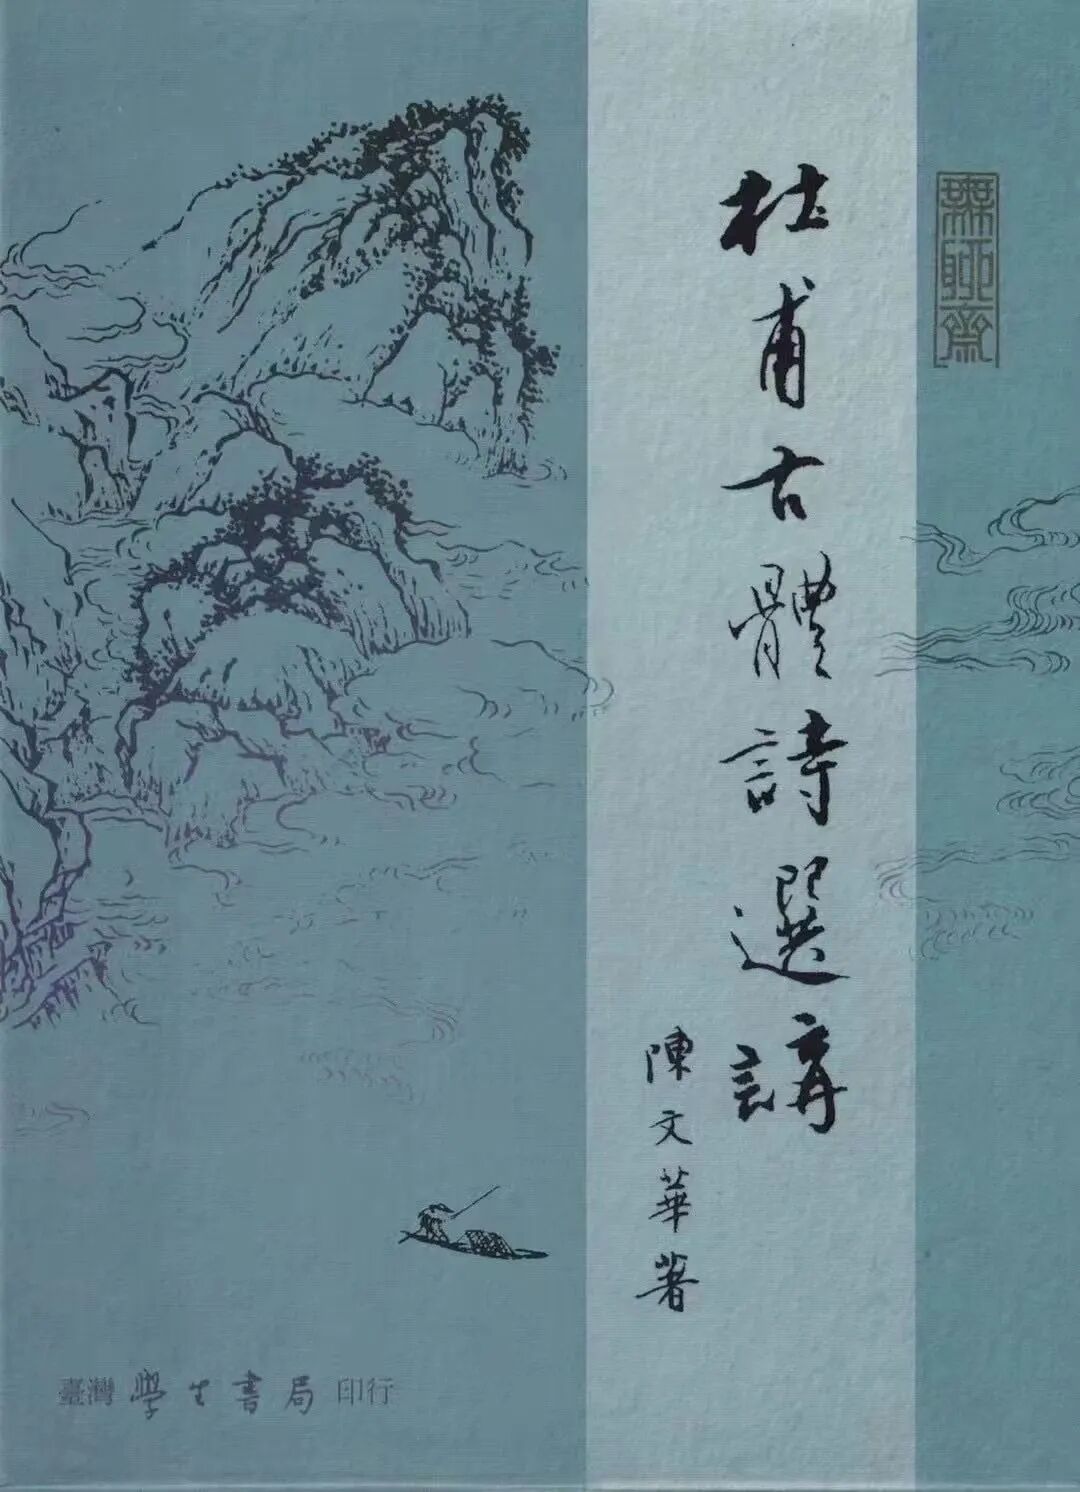 無聊齋
杜甫古體詩選講
陳文華著
臺灣學生書局印行